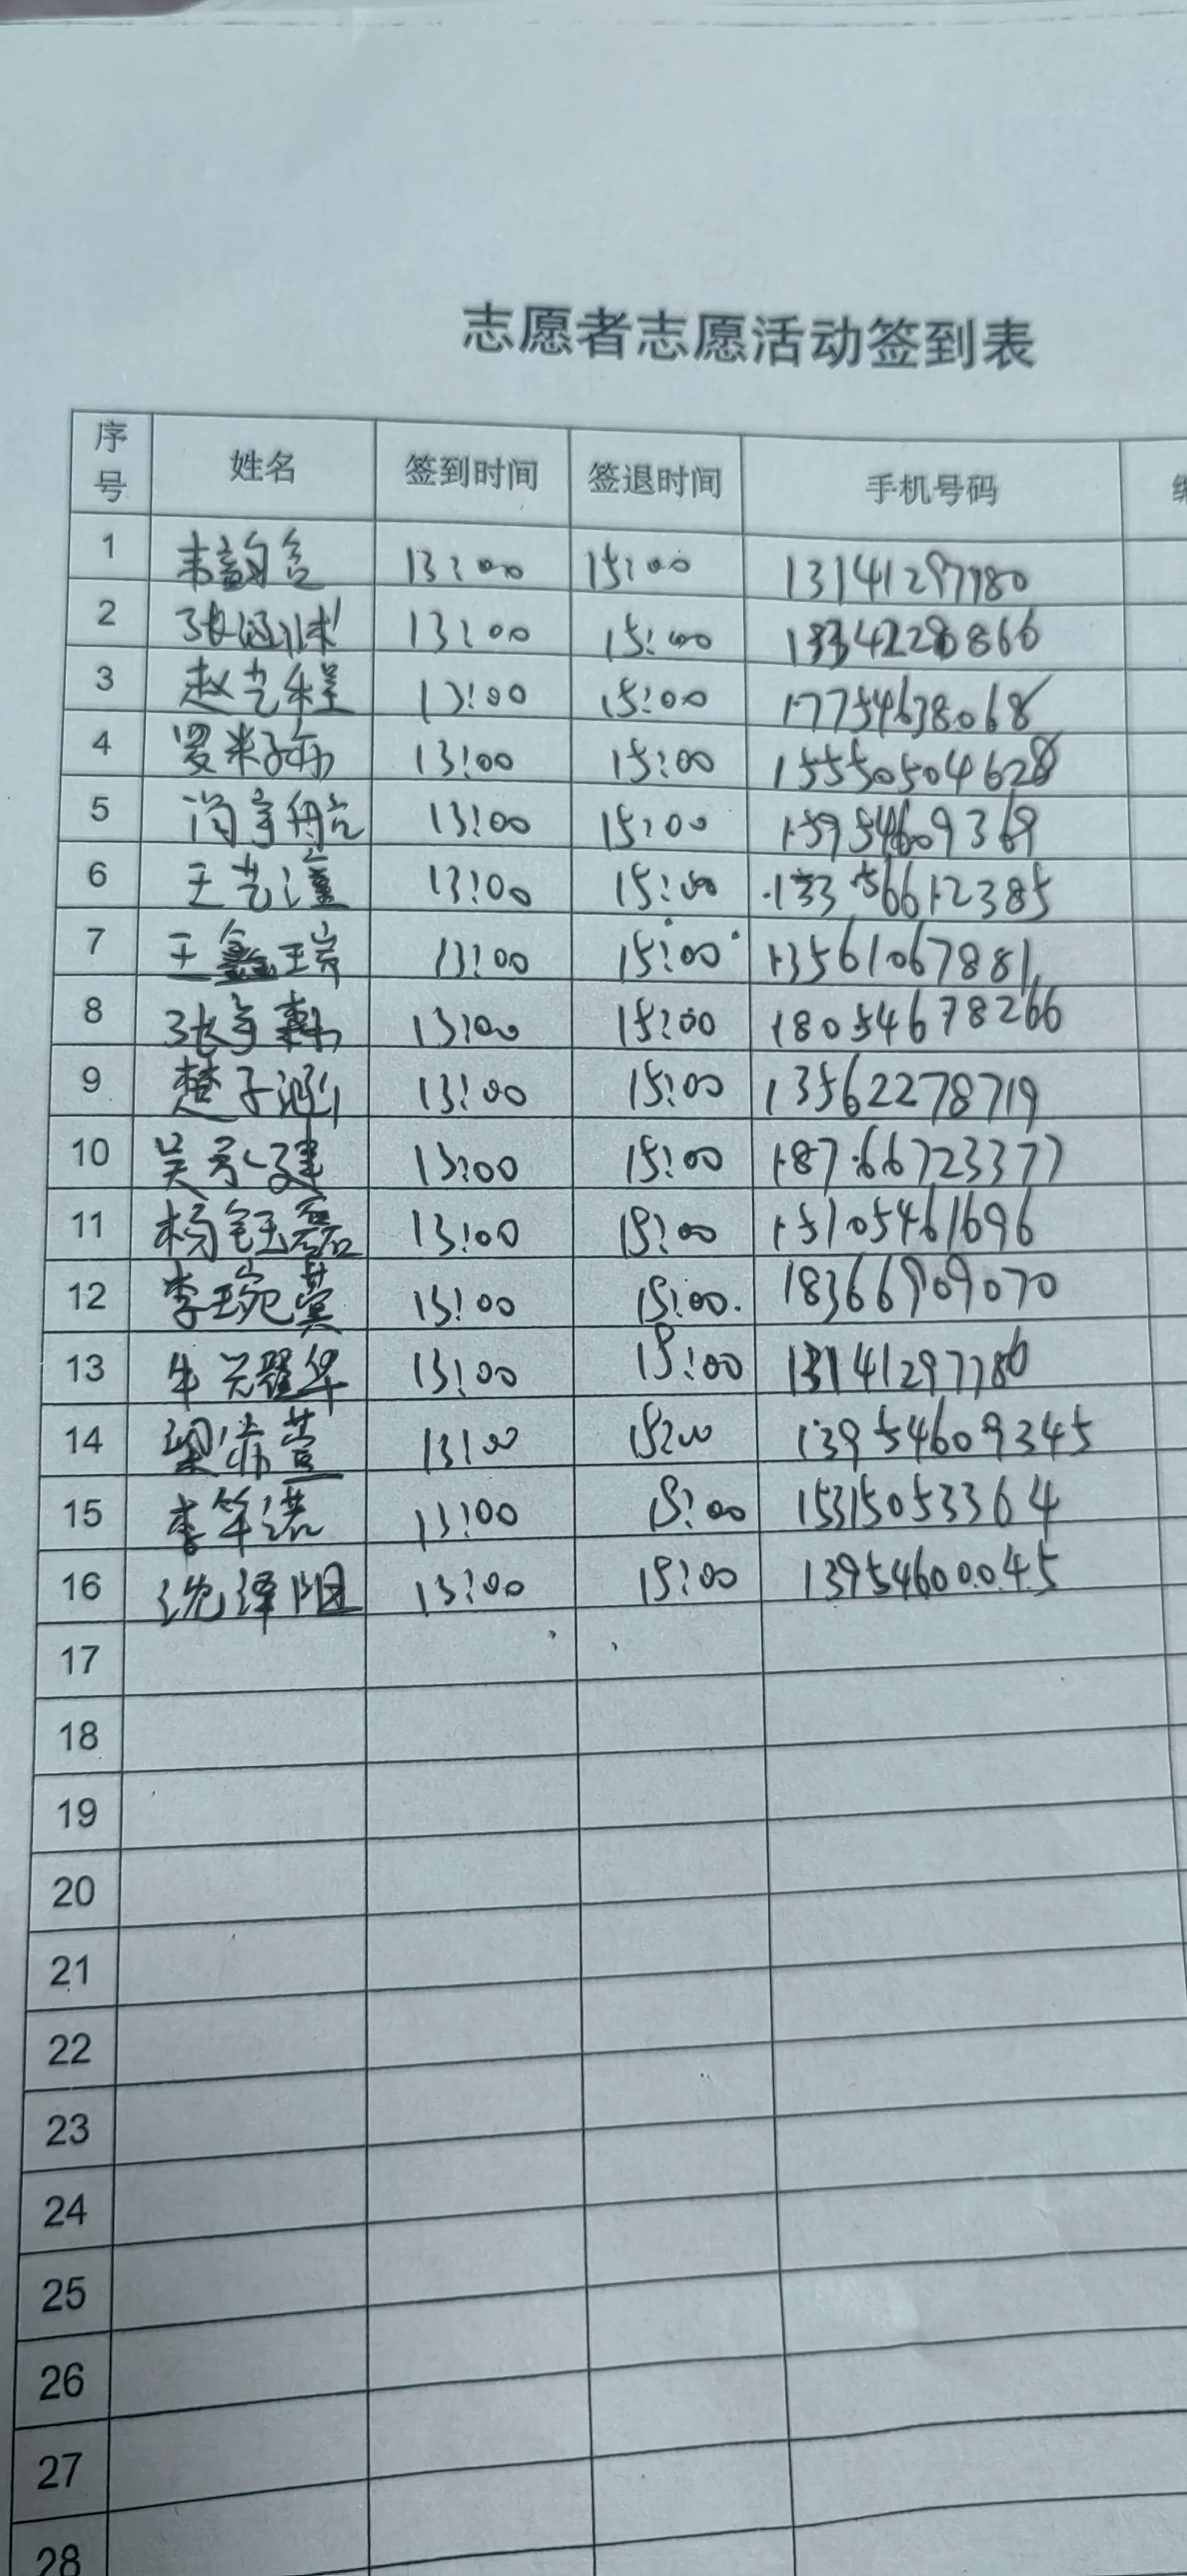 志愿者志愿活动签到表
序号 姓名 签到时间 签退时间 手机号码
1 13:00 15:00 13141297780
2 张 13:00 15:00
3 赵艺程 13:00 15:00 17754638068
4 13:00 15:00 15550504628
5 13:00 15:00 15954609369
6 王艺潼 13:00 15:00 13356612385
7 王鑫瑞 13:00 15:00 13561067881
8 张 13:00 15:00 18054678266
9 楚子涵 13:00 15:00 13562278719
10 吴 13:00 15:00 18766723377
11 杨钰磊 13:00 15:00 15105461696
12 李琬蓂 13:00 15:00 18366909070
13 牛 13:00 15:00 13141297786
14 梁 萱 13:00 15:00 13954609345
15 李 13:00 15:00 15315053364
16 沈泽 13:00 15:00 13954600045
17
18
19
20
21
22
23
24
25
26
27
28